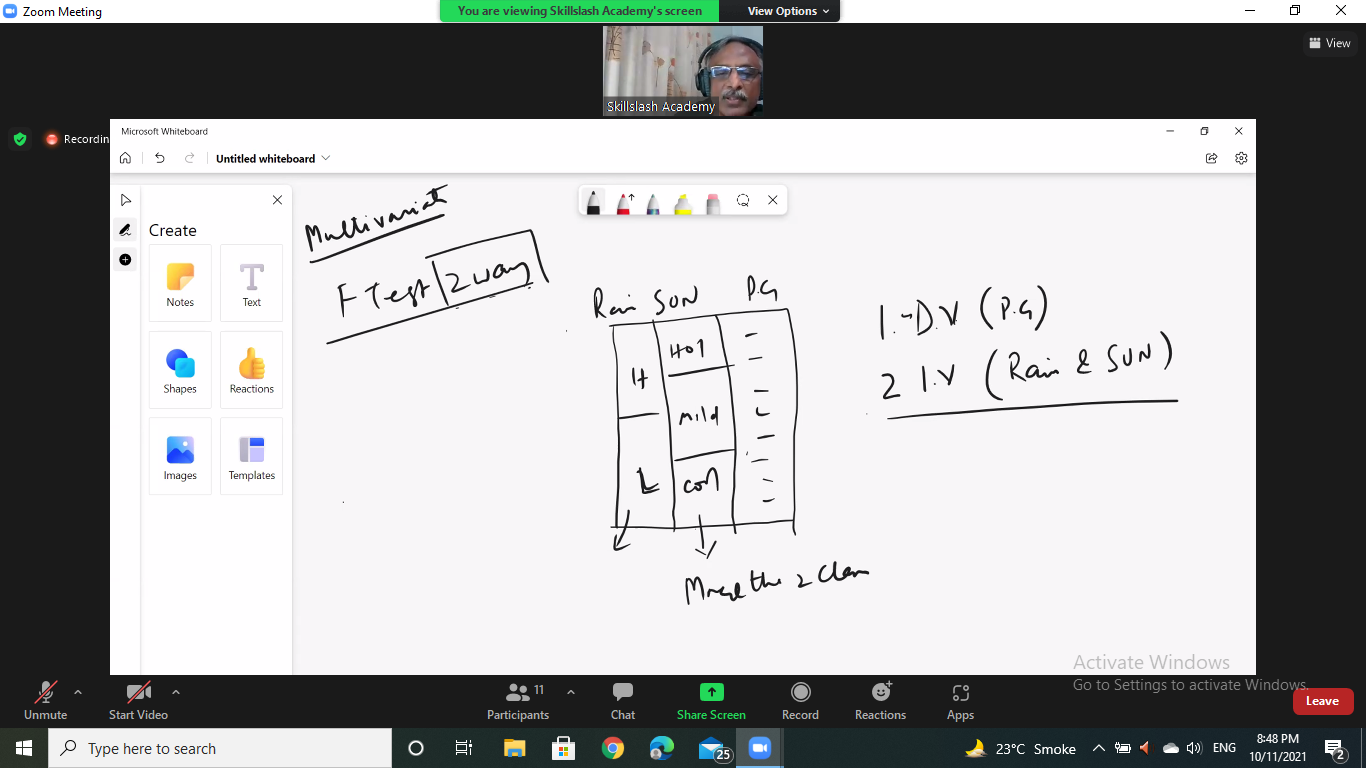 Zoom Meeting
You are viewing Skillslash Academy's screen
View Options
View
Skillslash Academy
Recordin
Microsoft Whiteboard
Untitled whiteboard
Create
Notes
Text
Shapes
Reactions
Images
Templates
Multivariat
F Test 2 way
Rain SUN P.G
H
Hot
mild
L
cool
1.-D.V (P.G)
2 I.V (Rain & SUN)
the 2
Activate Windows
Go to Settings to activate Windows.
Unmute
Start Video
Participants
11
Chat
Share Screen
Record
Reactions
Apps
Leave
Type here to search
25
23°C Smoke
ENG
8:48 PM
10/11/2021
2